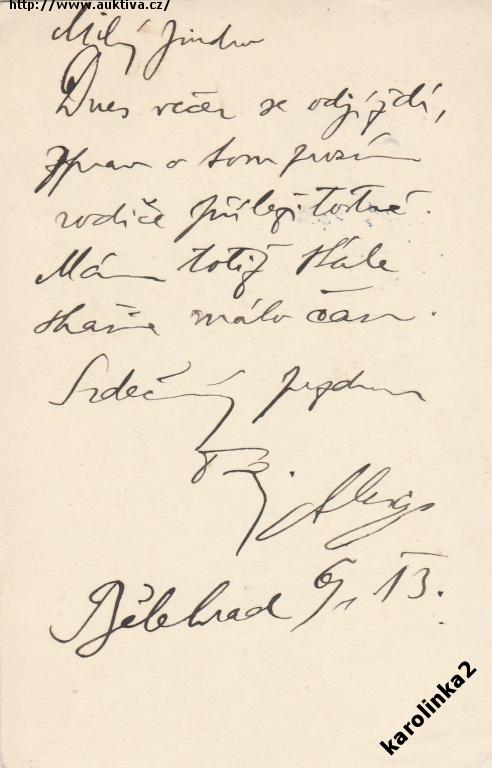 http://www.auktiva.cz/
Milý Jindro
Dnes večer se odjíždí,
zprav o tom prosím
rodiče příležitostně.
Mám totiž stále
málo času.
Srdečný pozdrav
Tvůj
Bělehrad 6/1 13.
karolinka2